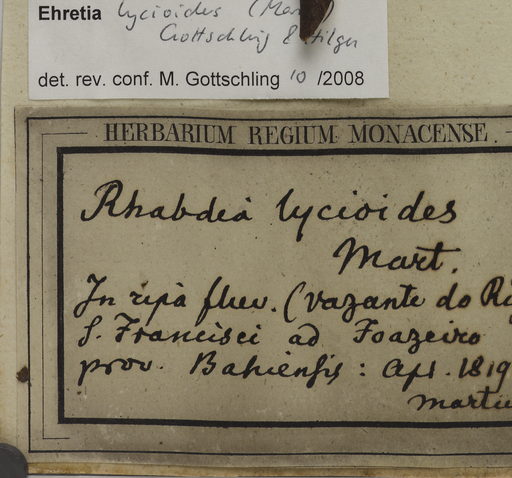 Ehretia lycioides (Mar
Gottschling & Hilger
det. rev. conf. M. Gottschling 10 /2008
HERBARIUM REGIUM MONACENSE.
Rhabdia lycioides
Mart.
In ripa fluv. (vazante do Ri
S. Francisci ad Joazeiro
prov. Bahiensis: Apl. 1819
Martiu